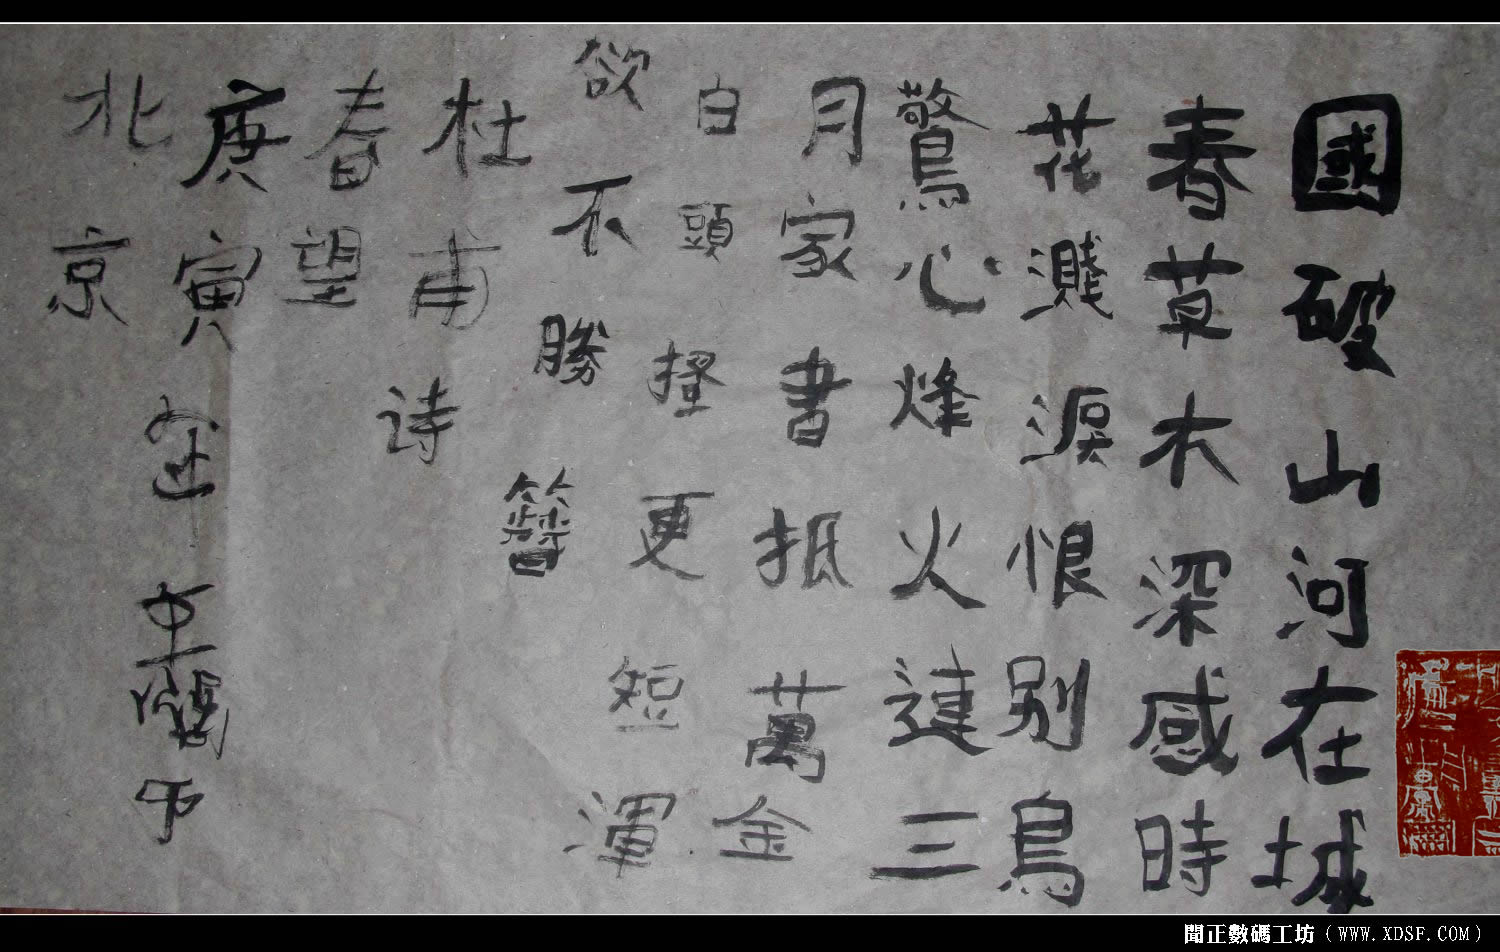 國破山河在城
春草木深感時
花濺淚恨别鳥
驚心烽火連三
月家書抵萬金
白頭搔更短渾
欲不勝簪
杜甫诗
春望
庚寅
北京
聞正數碼工坊（WWW.XDSF.COM）